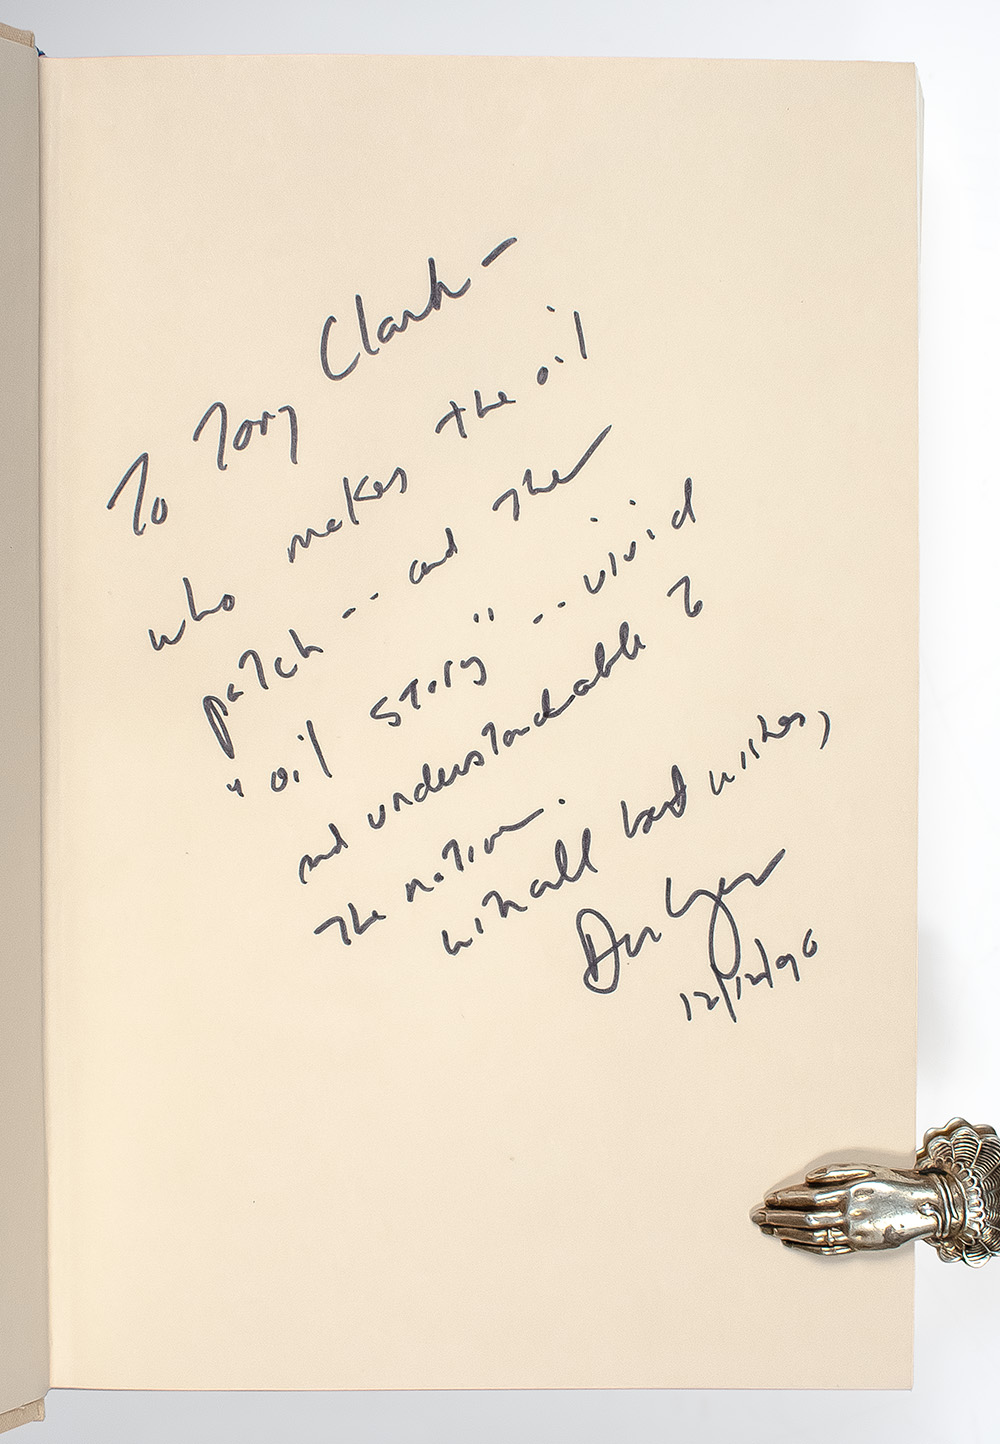 To Tony Clark –
who makes the oil
patch -- and the
"oil story" -- vivid
and understandable to
the nation.
with all best wishes,
Dan Yergin
12/12/90